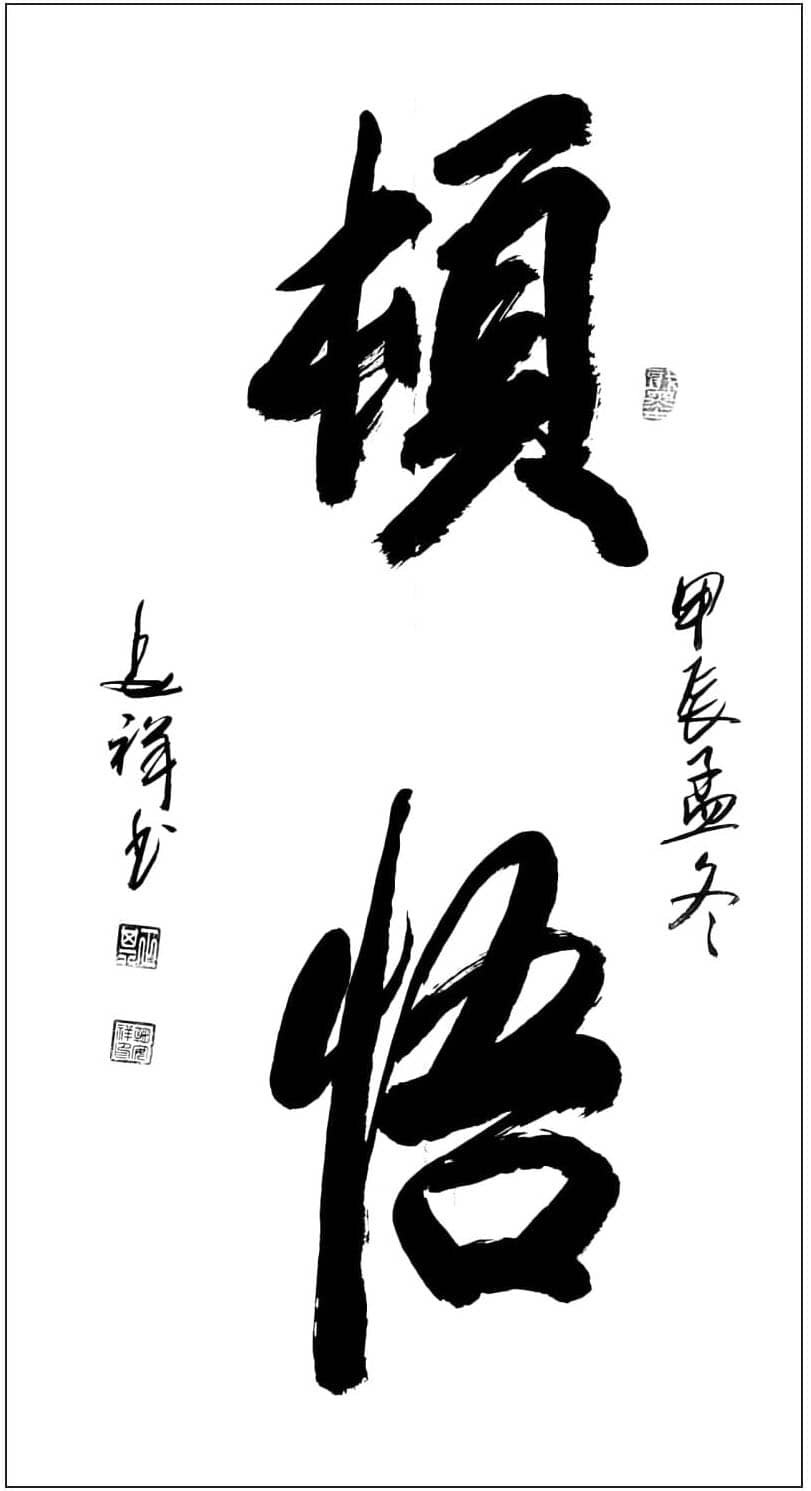 頓悟
甲辰孟冬
祥书